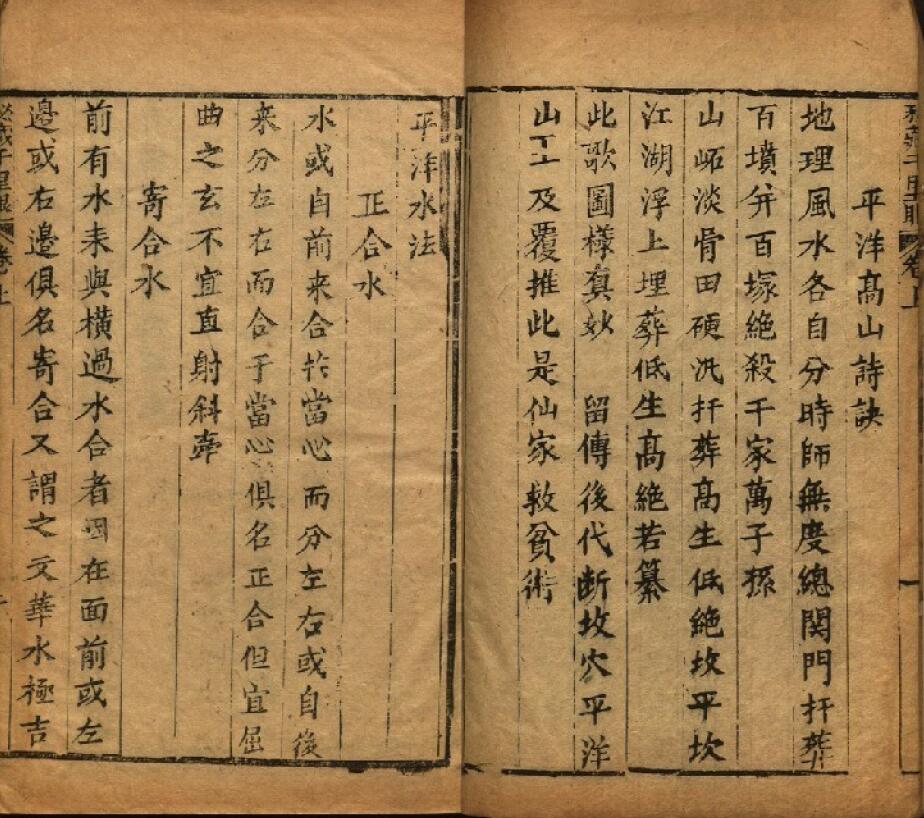 平洋高山詩訣
地理風水各自分時師無度總関門扦葬
百墳弁百塚絶殺千家萬子孫
山岵淡骨田硬氿扦葬高生低絶坟平坎
江湖浮上埋葬低生高絶若纂
此歌圖樣真妙 留傳後代断坟穴平洋
山丁工及覆推此是仙家救貧術
平洋水法
正合水
水或自前来合扵當心而分左右或自後
来分左右而合于當心俱名正合但宜屈
曲之玄不宜直射斜牽
寄合水
前有水来與横過水合者因在面前或左
邉或右邉俱名寄合又謂之文華水極吉